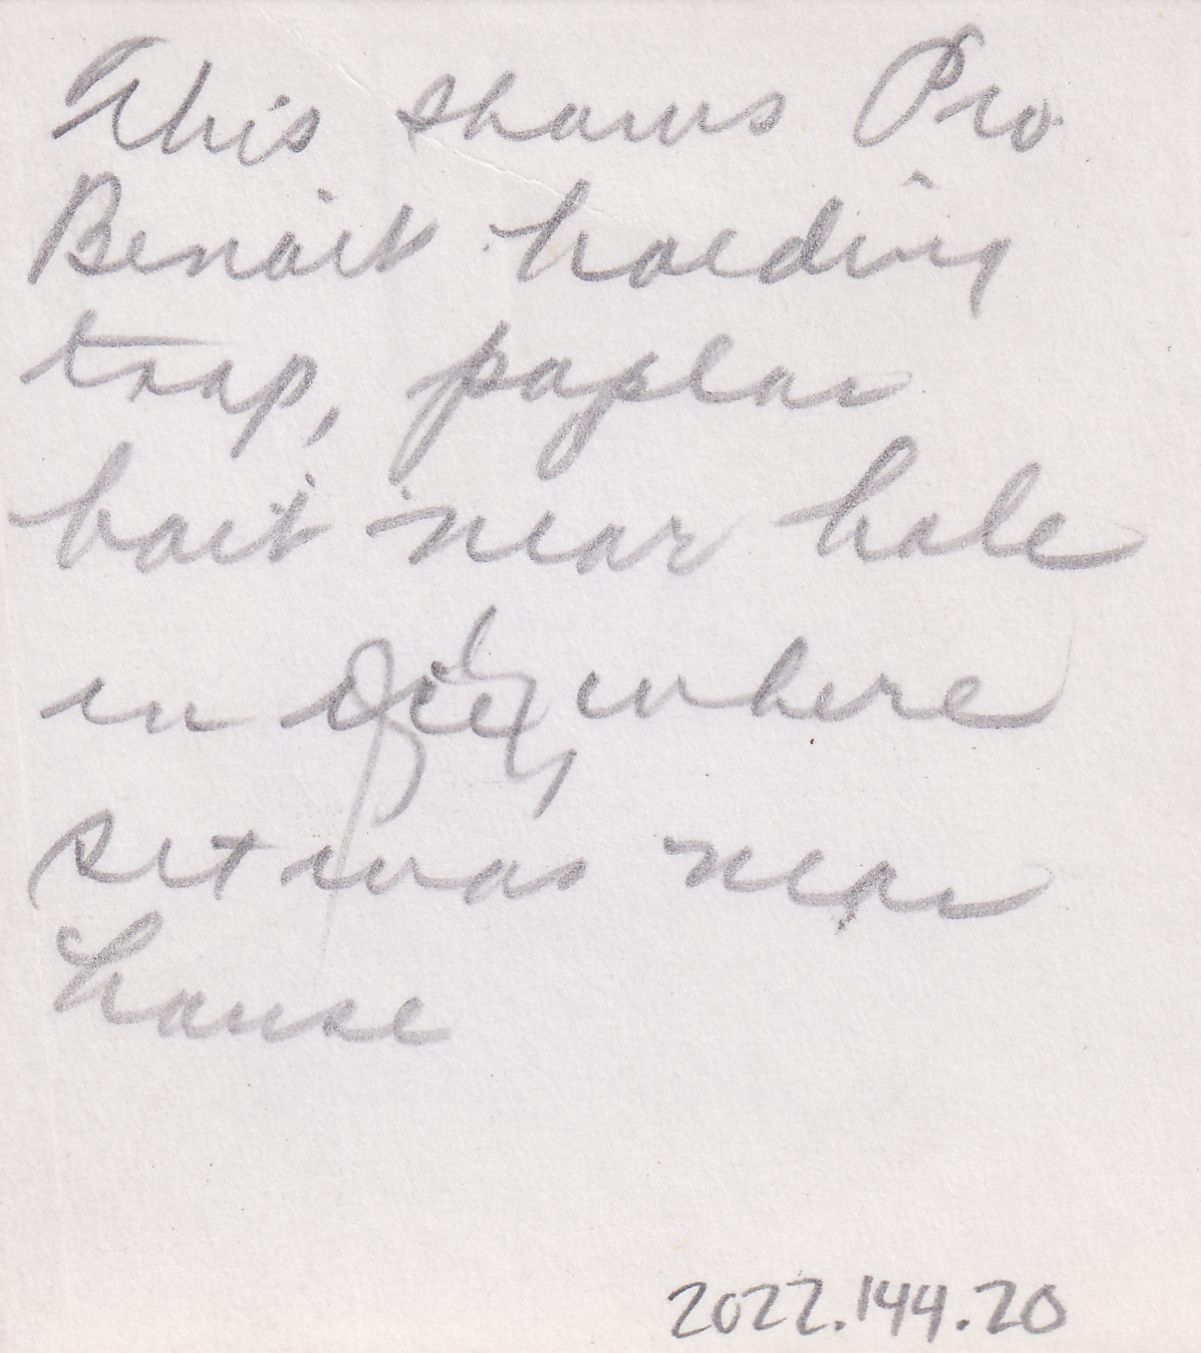 This shows Pro
Benoit holding
trap, poplar
bait near hole
in ice, where
set was near
house
2022.144.20